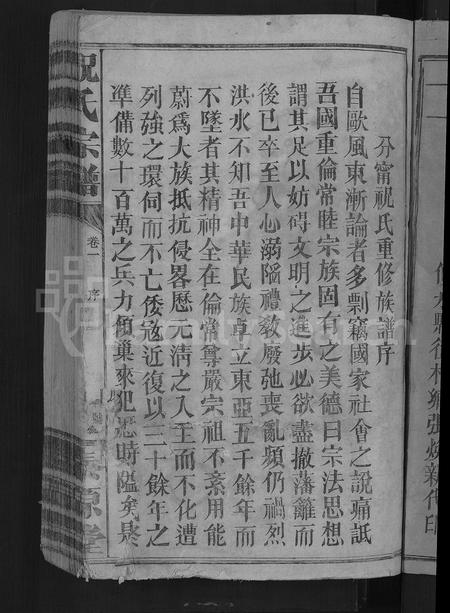 分甯祝氏重修族譜序
自歐風東漸論者多剽竊國家社會之說痛詆
吾國重倫常睦宗族固有之美德曰宗法思想
謂其足以妨碍文明之進步必欲盡撤藩籬而
後已卒至人心溺陷禮教廢弛喪亂頻仍禍烈
洪水不知吾中華民族卓立東亞五千餘年而
不墜者其精神全在倫常尊嚴宗祖不紊用能
蔚爲大族抵抗侵畧歷元清之入主而不化遭
列強之環伺而不亡倭寇近復以三十餘年之
準備數十百萬之兵力傾巢來犯
時隘矣是
祝氏宗譜
卷一
序
源堂